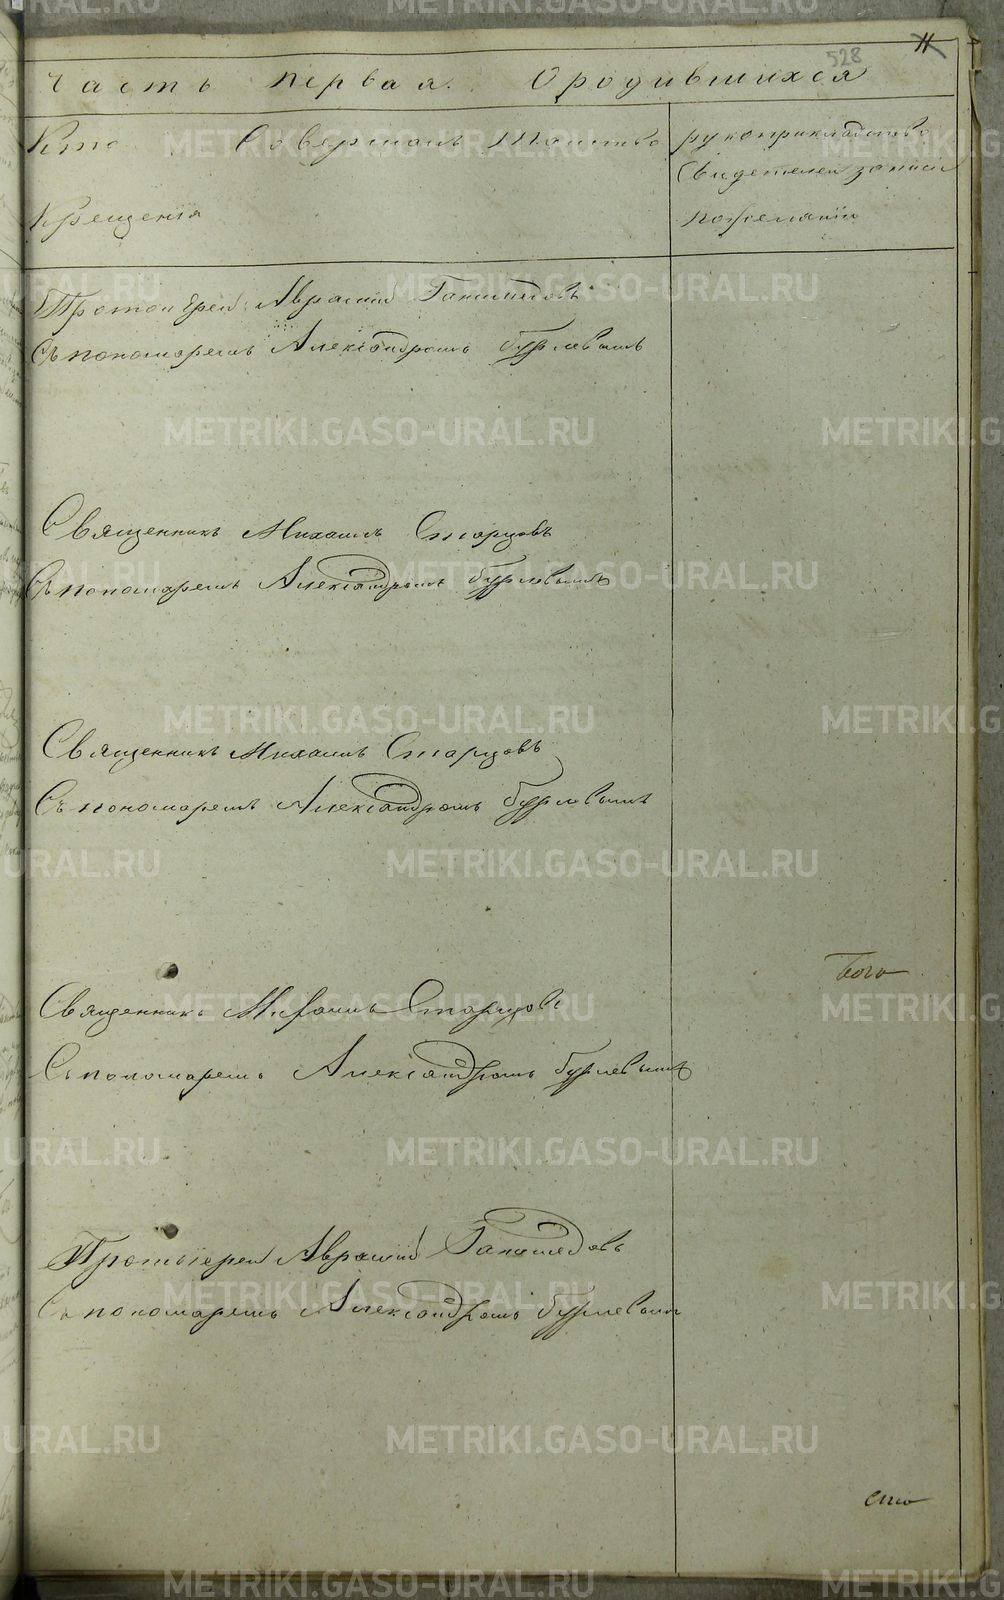 528 11
Часть первая. О родившихся
Кто Совершалъ таинство
Крещенія
рукоприкладство
свидетелей записи
по желанію
Протоиерей Аврамій
Съ пономаремъ Александромъ Бурлевымъ
Священникъ Михаилъ Старцовъ
Съ пономаремъ Александромъ Бурлевымъ
Священникъ Михаилъ Старцовъ
Съ пономаремъ Александромъ Бурлевымъ
Священникъ Михаилъ Старцовъ
Съ пономаремъ Александромъ Бурлевымъ
Протоіерей Аврамій
Съ пономаремъ Александромъ Бурлевымъ
METRIKI.GASO-URAL.RU